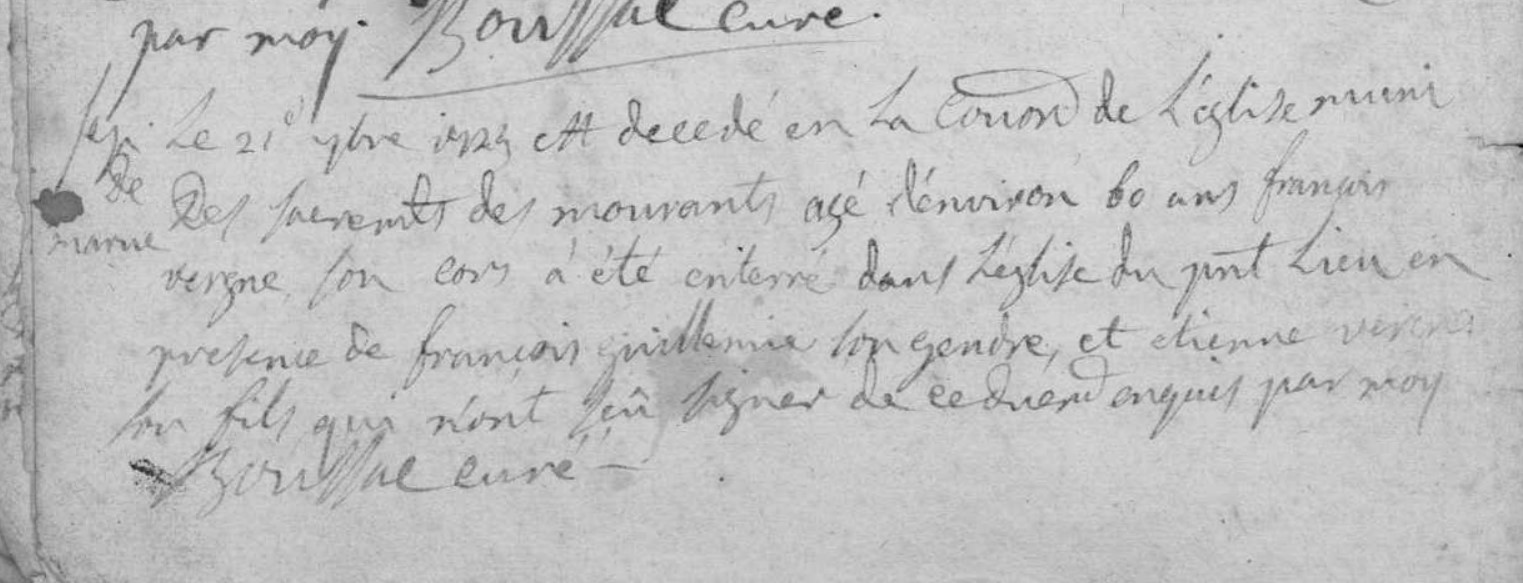 par moy. Boussac curé.
Sep. Le 21e 9bre est decedé en La Comon de L'église muni
de Des sacremts des mourants agé d'environ 60 ans françois
marue vergne, son cors à été enterré dans L'église du pnt Lieu en
presence de françois guillemie son gendre, et etienne vergne
son fils qui n'ont sçû signer de ce duemd enquis par moy
Boussac curé